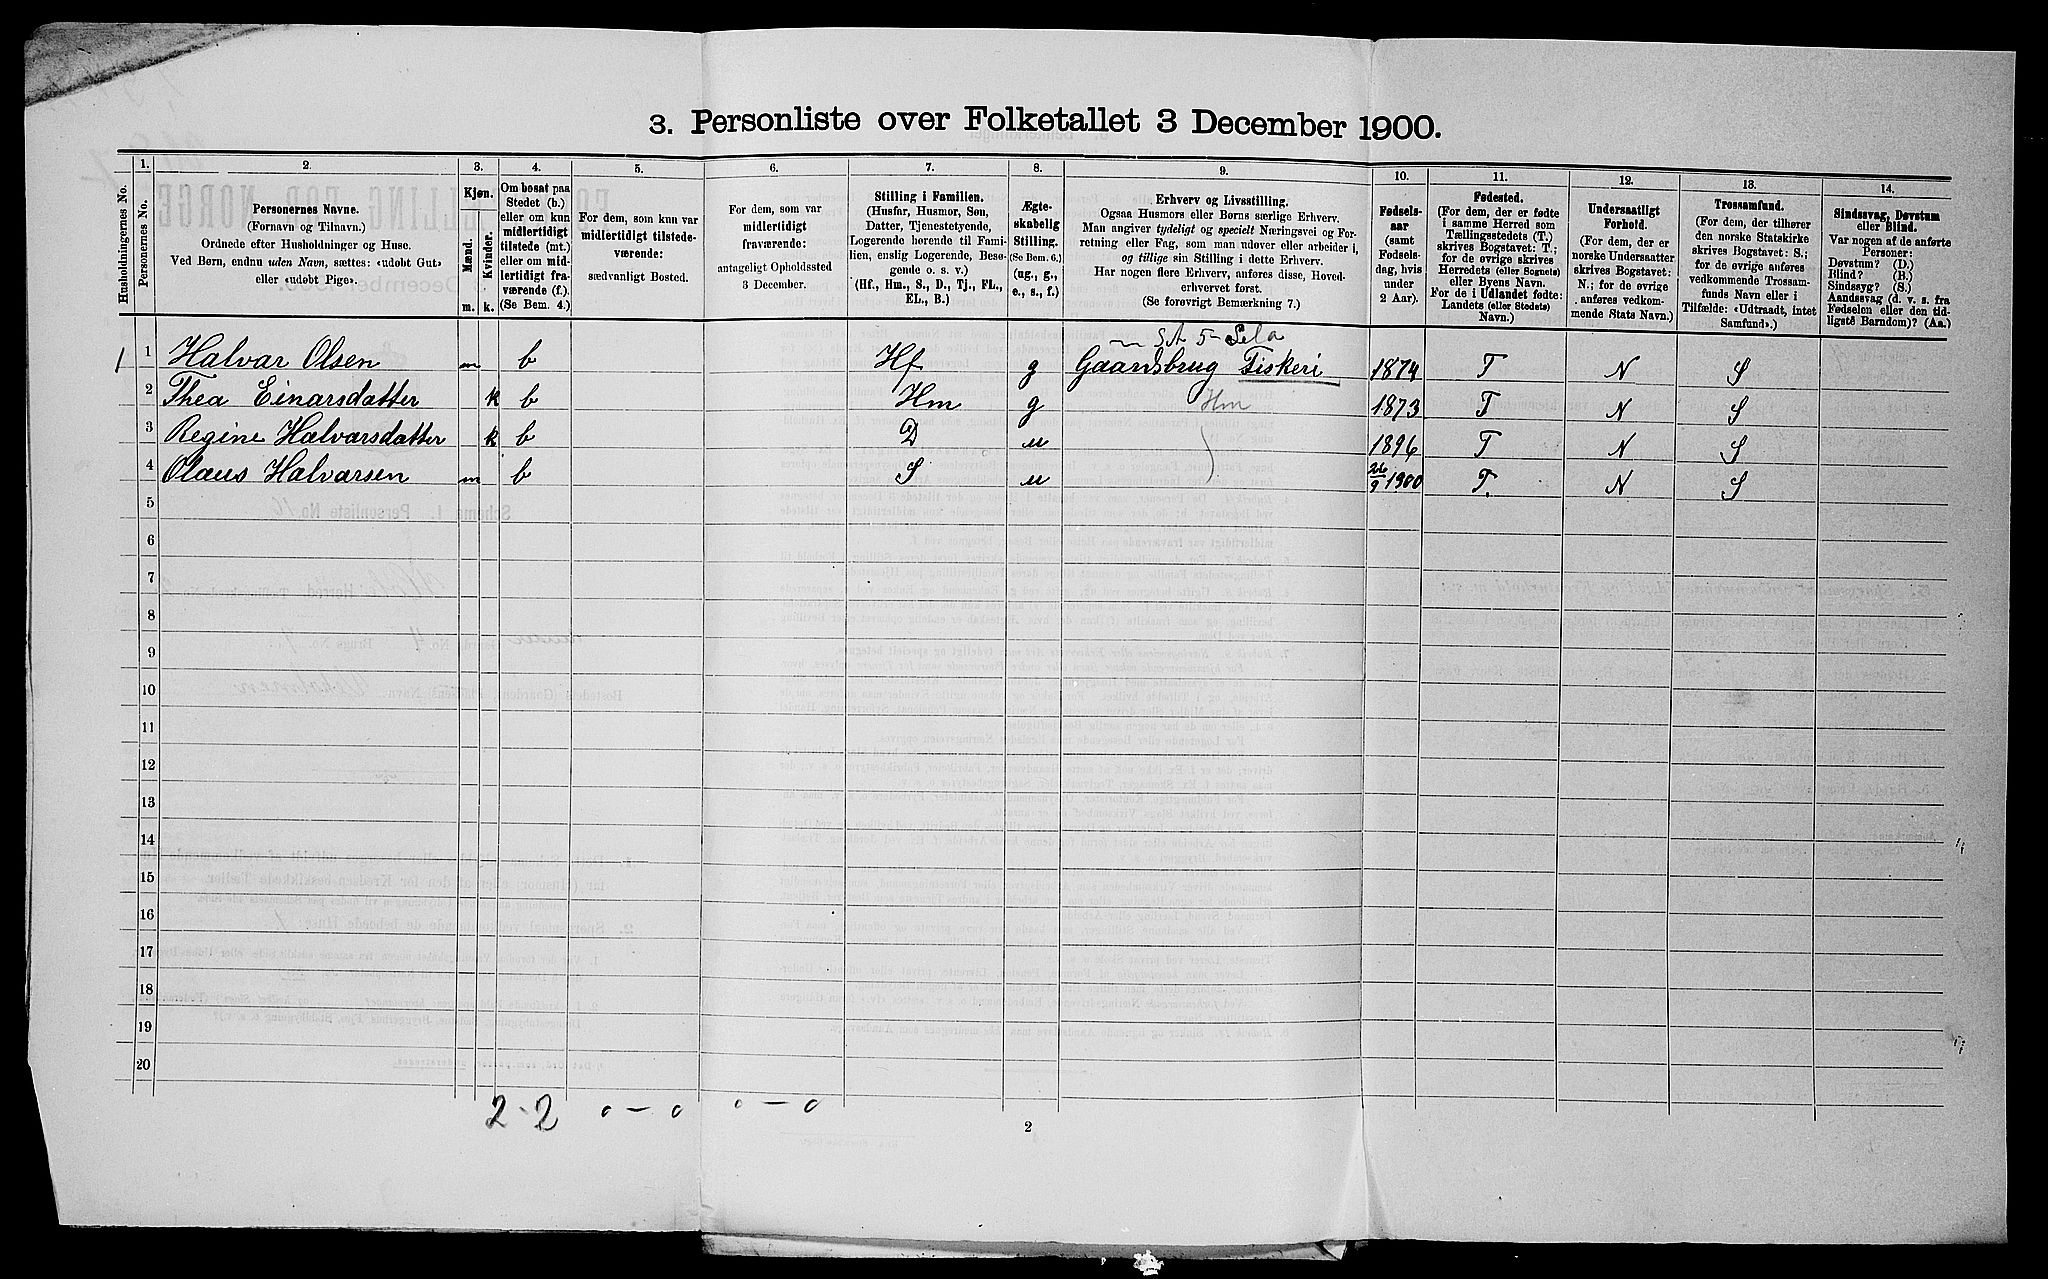 3. Personliste over Folketallet 3 December 1900.
Husholdningernes No.
1. Personernes No.
2. Personernes Navne.
(Fornavn og Tilnavn.)
Ordnede efter Husholdninger og Huse.
Ved Børn, endnu uden Navn, sættes: «udøbt Gut»
eller «udøbt Pige».
3. Kjøn.
Mænd. Kvinder.
m. k.
4. Om bosat paa
Stedet (b.)
eller om kun
midlertidigt
tilstede (mt.)
eller om mid-
lertidigt fra-
værende (f.).
(Se Bem. 4.)
5. For dem, som kun var
midlertidigt tilstede-
værende:
sædvanligt Bosted.
6. For dem, som var
midlertidigt
fraværende:
antageligt Opholdssted
3 December.
7. Stilling i Familien.
(Husfar, Husmor, Søn,
Datter, Tjenestetyende,
Logerende hørende til Fami-
lien, enslig Logerende, Besø-
gende o. s. v.)
(Hf., Hm., S., D., Tj., FL.,
EL., B.)
8. Ægte-
skabelig
Stilling.
(Se Bem. 6.)
(ug., g.,
e., s., f.)
9. Erhverv og Livsstilling.
Ogsaa Husmors eller Børns særlige Erhverv.
Man angiver tydeligt og specielt Næringsvei og For-
retning eller Fag, som man udøver eller arbeider i,
og tillige sin Stilling i dette Erhverv.
Har nogen flere Erhverv, anføres disse, Hoved-
erhvervet først.
(Se forøvrigt Bemærkning 7.)
10. Fødsels-
aar
(samt
Fødsels-
dag, hvis
under
2 Aar).
11. Fødested.
(For dem, der er fødte
i samme Herred som
Tællingsstedets (T.)
skrives Bogstavet: T.;
for de øvrige skrives
Herredets (eller Sognets)
eller Byens Navn.
For de i Udlandet fødte:
Landets (eller Stedets)
Navn.)
12. Undersaatligt
Forhold.
(For dem, der er
norske Undersaatter
skrives Bogstavet:
N.; for de øvrige
anføres vedkom-
mende Stats Navn.)
13. Trossamfund.
(For dem, der tilhører
den norske Statskirke
skrives Bogstavet: S.;
for de øvrige anføres
vedkommende Trossam-
funds Navn eller i
Tilfælde: «Udtraadt, intet
Samfund».)
14. Sindssvag, Døvstum
eller Blind.
Var nogen af de anførte
Personer:
Døvstum? (D.)
Blind? (B.)
Sindssyg? (S.)
Aandssvag (d. v. s. fra
Fødselen eller den tid-
ligste Barndom)? (Aa.)
1 1 Halvar Olsen m b Hf g Gaardsbrug Fiskeri 1874 T N S
2 Thea Einarsdatter k b Hm g Hm 1873 T N S
3 Regine Halvarsdatter k b D u 1896 T N S
4 Olaus Halvarsen m b S u 26/9 1900 T. N S
5
6
7
8
9
10
11
12
13
14
15
16
17
18
19
20
2 - 2 0 - 0 0 - 0
2